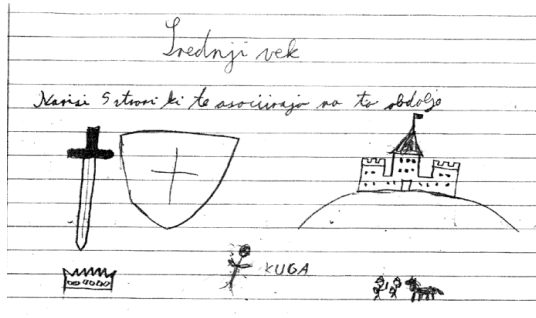 Srednji vek
Nariši 5 stvari ki te asociirajo na to obdobje
KUGA